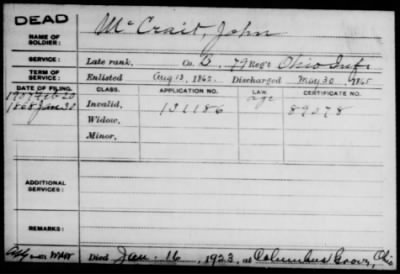 DEAD
NAME OF SOLDIER: McCrait, John
SERVICE: Late rank, Co. B, 79 Reg't Ohio Inf.
TERM OF SERVICE: Enlisted Aug 13, 1862. Discharged May 30, 1865
DATE OF FILING. CLASS. APPLICATION NO. LAW. CERTIFICATE NO.
1868 Jan 30 Invalid, 131186 Age 89278
Widow,
Minor,
ADDITIONAL SERVICES:
REMARKS:
Died Jan. 16, 1923, at Columbus Grove, Ohio